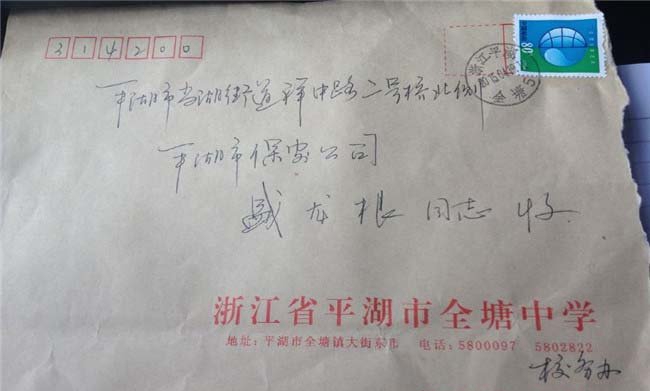 314200
80
浙江平湖
平湖市当湖街道 中路二号桥北侧
平湖市保安公司
盛龙根 同志 收
浙江省平湖市全塘中学
地址:平湖市全塘镇大街东市 电话:5800097 5802822
校务办